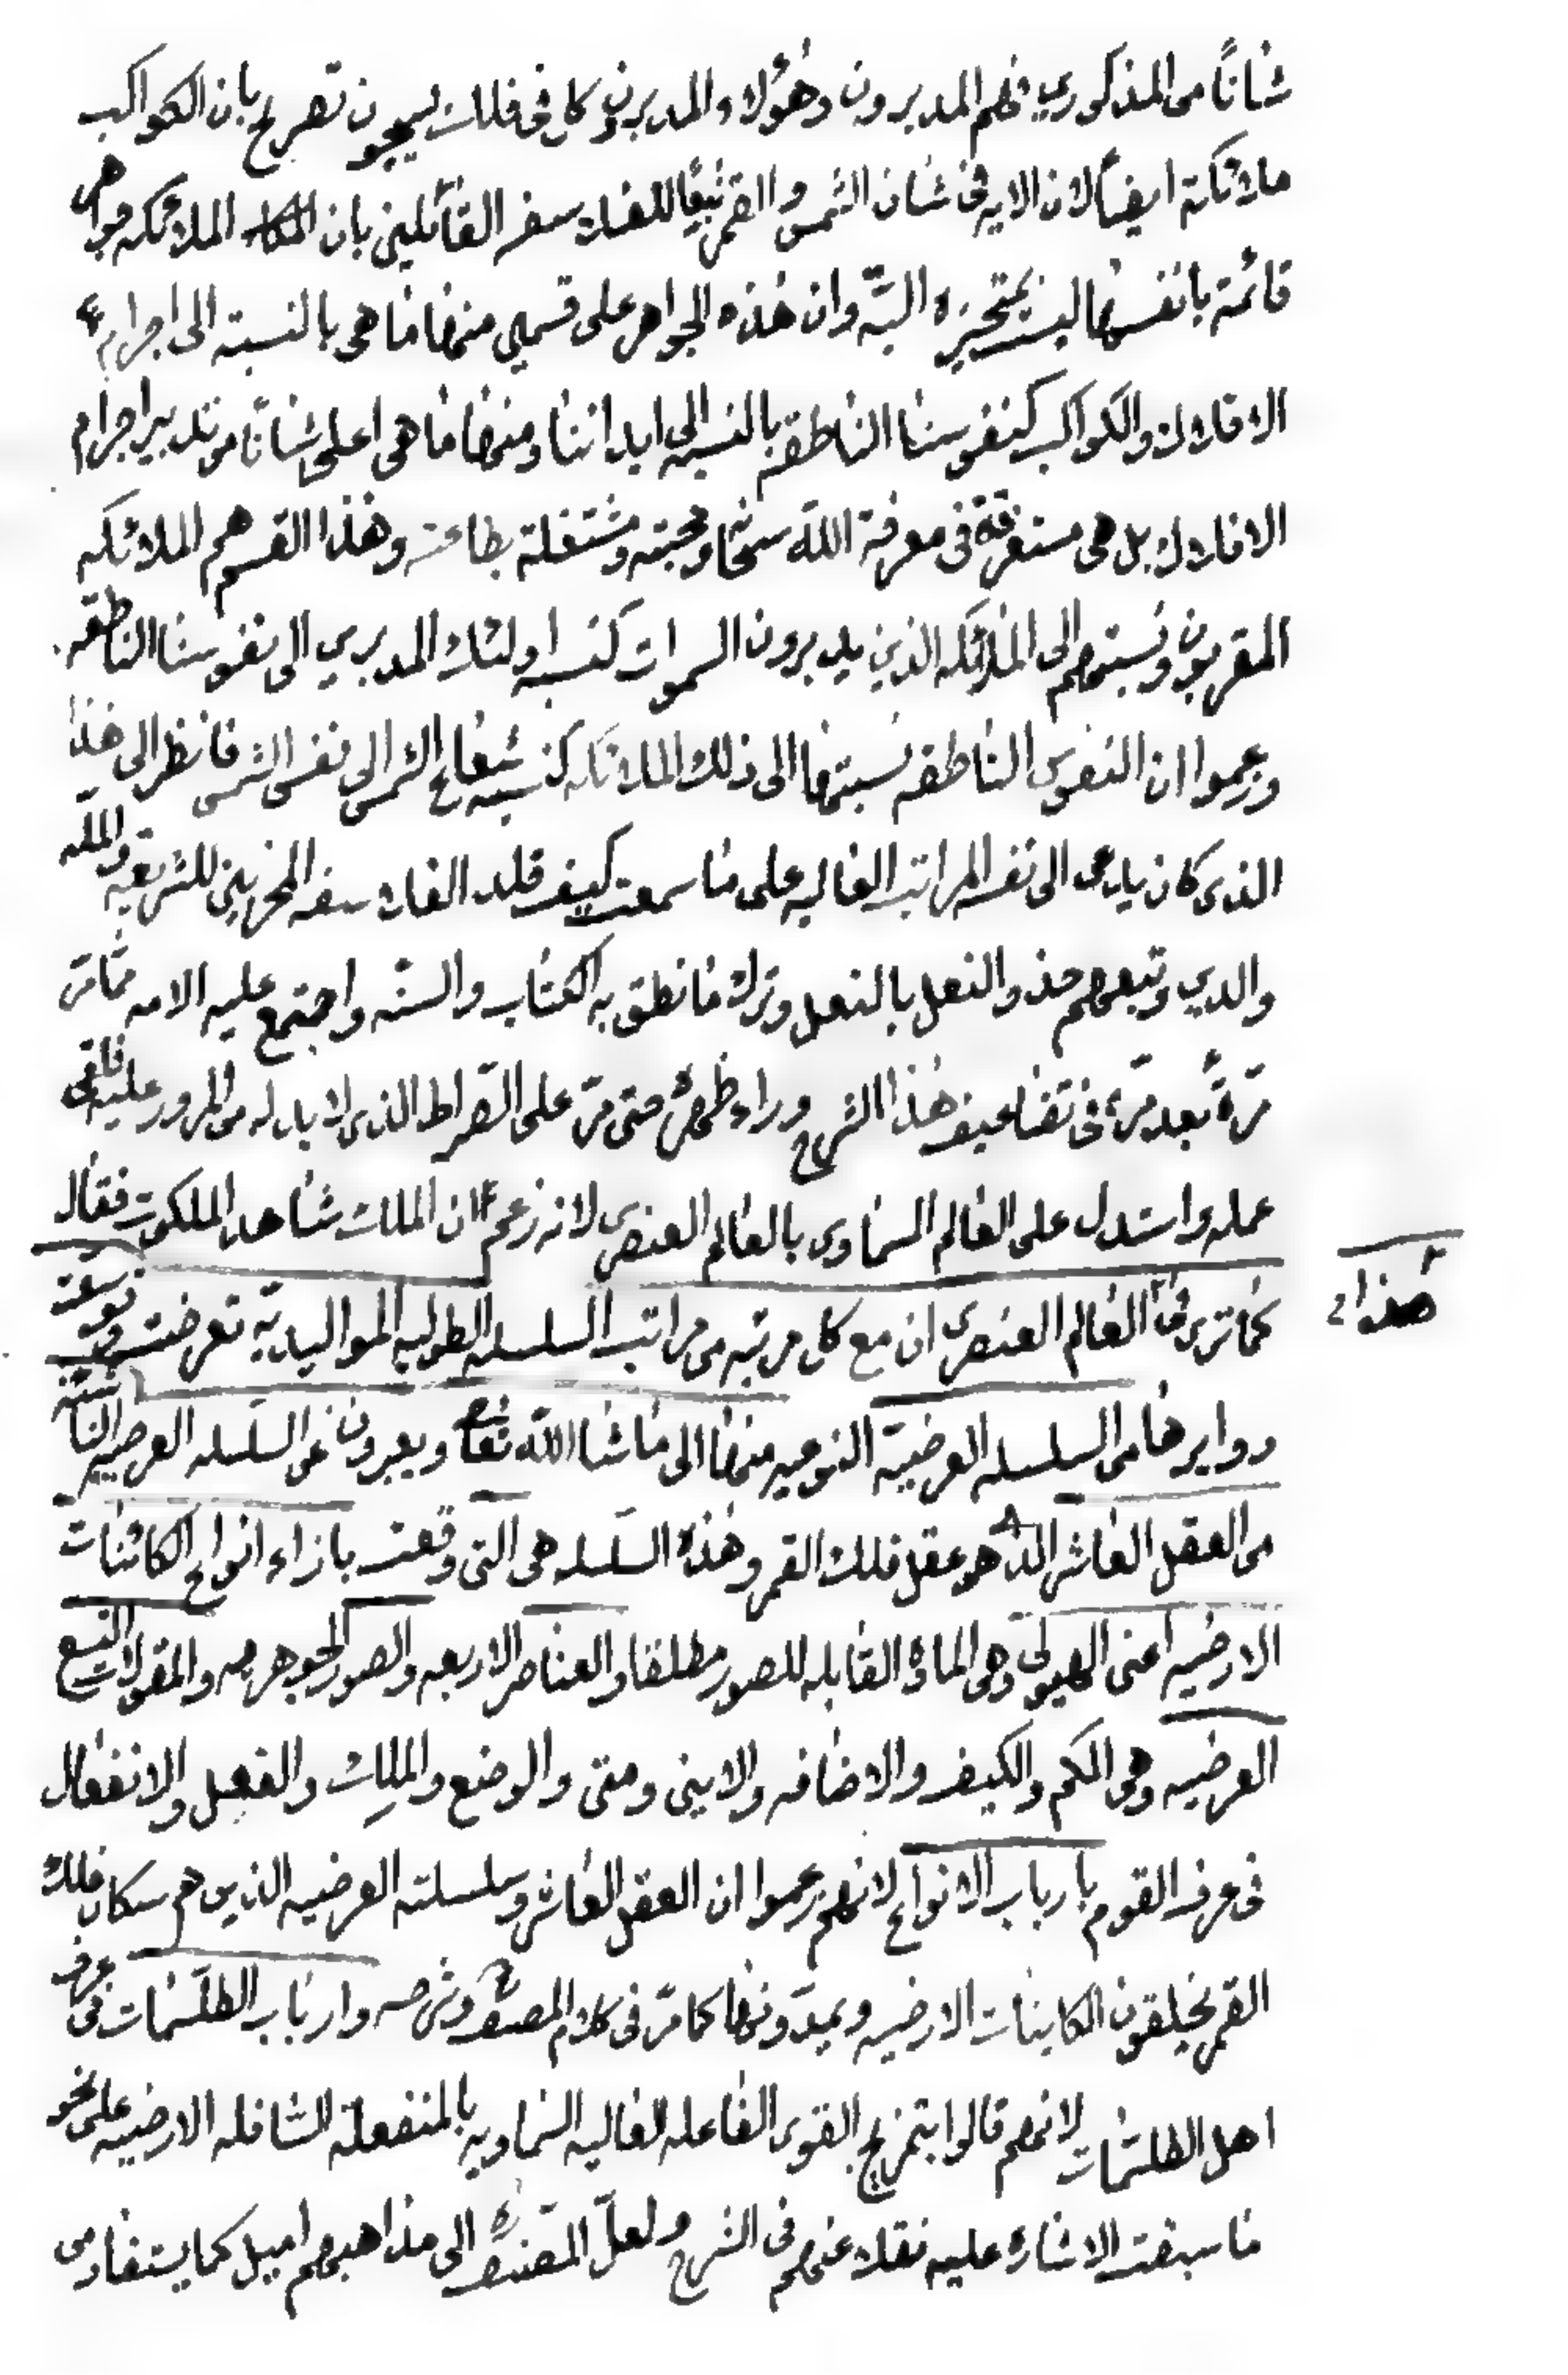 شاناً من المذكورين فهم المدبرون وهؤلاء المدبرون كل فى فلك يسبحون تصريح بان الكواكب
ملائكة ايضاً لان الايه فى شان الشمس والقمر تبعاً للفلاسفه القائلين بان الملائكه جواهر
قائمة بانفسها ليست بمتحيزه البتّه وان هذه الجواهر على قسمين منها ما هى بالنسبة الى اجرام
الافلاك والكواكب كنفوسنا الناطقه بالنسبه الى ابداننا ومنها ما هى اعلى شاناً من تدبير اجرام
الافلاك بل هى مستغرقة فى معرفة الله سبحانه ومحبته ومشتغلة بطاعته وهذا القسم هم الملائكه
المقربون ونسبتهم الى الملائكه الذين يدبرون السموات كنسبه اولئك المدبرين الى نفوسنا الناطقه
وزعموا ان النفوس الناطقه نسبتها الى ذلك الملائكه كنسبه شعاع الشمس الى نفس الشمس فانظر الى هذا
الذى كان يدعى الى نفسه المراتب العاليه على ما سمعت كيف قلد الفلاسفه المخربين للشريعه والملّه
والدين وتبعهم حذو النعل بالنعل وترك ما نطق به الكتاب والسنّه واجتمع عليه الامه ممّا مرّ
مرّةً بعد مرّة فى تضاعيف هذا الشرح وراء ظهره حتى مرّ على الصّراط الذى لا بد له من المرور عليه فى
عمله واستدل على العالم السماوى بالعالم العنصرى لانه زعم ان الملك شاهد الملكوت فقال
كما ترى فى هذا العالم العنصرى ان مع كل مرتبه من مراتب السلسله الطوليه المواليديّه تعرضت وتوسعت
دوايرها من السلسله العرضيّة النوعيه منها الى ما شاء الله تعالى ويعبرون عن السلسله العرضيه الناشئة
من العقل العاشر الذى هو عقل فلك القمر وهذه السلسله هى التى وقعت بازاء انواع الكائنات
الارضيه اعنى الهيولى وهى المادة القابله للصور مطلقا والعناصر الاربعه والصور الجوهريه والمقولات التسع
العرضيه وهى الكم والكيف والاضافه والاين ومتى والوضع والملك والفعل والانفعال
فى عرف القوم بارباب الانواع لانهم زعموا ان العقل العاشر وسلسلته العرضيه الذين هم سكان فلك
القمر يخلقون الكاينات الارضيه ويمدّونها كما مرّ فى كلام المصنف وارباب الطلسمات فى عرف
اهل الطلسمات لانهم قالوا بتمزيج القوى الفاعله العاليه السماويه بالمنفعلة السافله الارضيه على نحو
ما سبقت الاشاره عليه نقلا عنهم فى الشرح ولعلّ المصنف الى مذاهبهم اميل كما يستفاد من
هذا